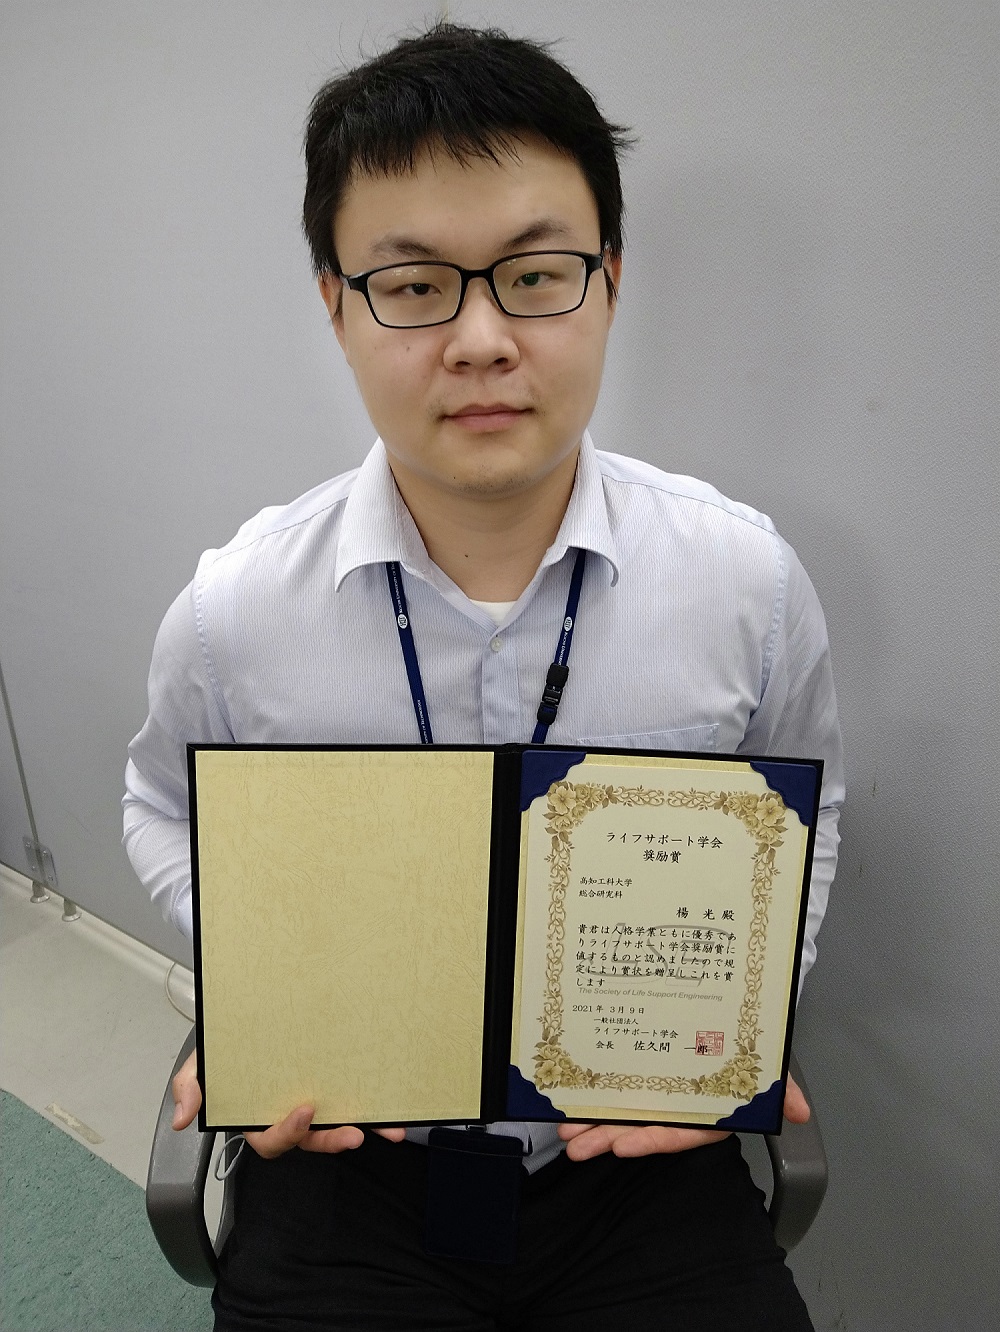 ライフサポート学会
奨励賞
高知工科大学
総合研究科
楊 光 殿
貴君は人格学業ともに優秀であ
りライフサポート学会奨励賞に
値するものと認めましたので規
定により賞状を贈呈しこれを賞
します
The Society of Life Support Engineering
2021年 3月 9日
一般社団法人
ライフサポート学会
会長 佐久間 一郎